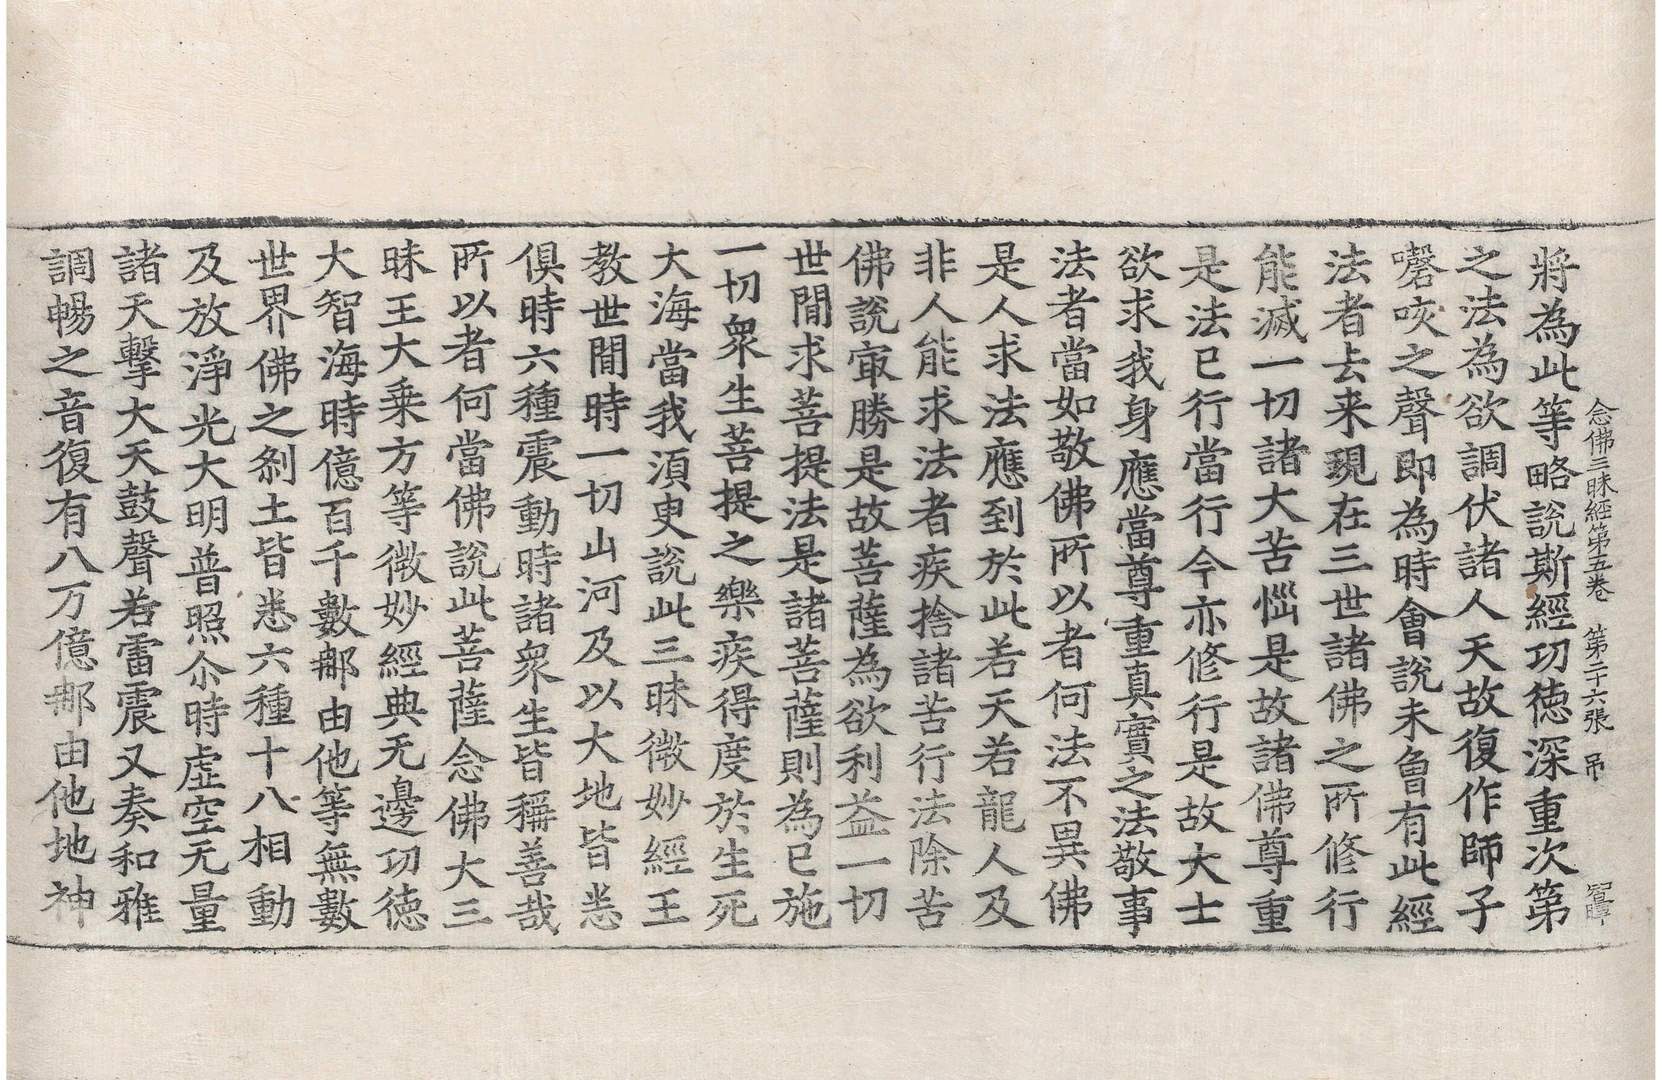 念佛三昧經第五卷　第二十六張　吊
將為此等略說斯經功德深重次第
之法為欲調伏諸人天故復作師子
嚬咳之聲即為時會說未曾有此經
法者去来現在三世諸佛之所修行
能滅一切諸大苦惱是故諸佛尊重
是法已行當行今亦修行是故大士
欲求我身應當尊重真實之法敬事
法者當如敬佛所以者何法不異佛
是人求法應到於此若天若龍人及
非人能求法者疾捨諸苦行法除苦
佛說㝡勝是故菩薩為欲利益一切
世間求菩提法是諸菩薩則為已施
一切眾生菩提之樂疾得度於生死
大海當我須臾說此三昧微妙經王
教世間時一切山河及以大地皆悉
俱時六種震動時諸眾生皆稱善哉
所以者何當佛說此菩薩念佛大三
昧王大乗方等微妙經典无邊功德
大智海時億百千數那由他等無數
世界佛之剎土皆悉六種十八相動
及放淨光大明普照尒時虛空无量
諸天擊大天鼓聲若雷震又奏和雅
調暢之音復有八万億那由他地神